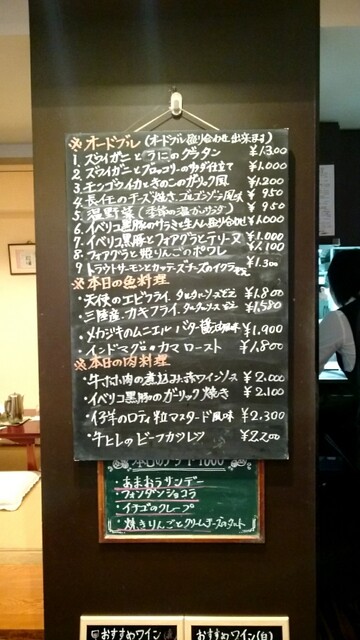 ※オードブル (オードブル盛り合わせ出来ます)
1. ズワイガニとうにのグラタン ¥1.300
2. ズワイガニとブロッコリーのサラダ仕立て ¥1.000
3. モンゴウイカときのこのガーリック風 ¥1.200
4. 長イモのチーズ焼き、ゴルゴンゾーラ風味 ¥950
5. 温野菜 (季節の温かいサラダ) ¥950
6. イベリコ黒豚のサラミと生ハム盛り合わせ ¥1.000
7. イベリコ黒豚とフォアグラとテリーヌ ¥1.000
8. フォアグラと姫りんごのポワレ ¥1.100
9. トラウトサーモンとカッテージチーズのイクラ ¥1.300
※本日の魚料理
・天使のエビフライ、タルタルソース ¥1.800
・三陸産カキフライ、タルタルソース ¥1.580
・メカジキのムニエル バター醤油風味 ¥1.900
・インドマグロのカマ ロースト ¥1.800
※本日の肉料理
・牛ホホ肉の煮込み、赤ワインソース ¥2.000
・イベリコ黒豚のガーリック焼き ¥2.100
・仔羊のロティ 粒マスタード風味 ¥2.300
・牛ヒレのビーフカツレツ ¥2.200
・あまおうサンデー
・フォンダンショコラ
・イチゴのクレープ
・焼きりんごとクリームチーズのタルト
おすすめワイン
おすすめワイン(白)